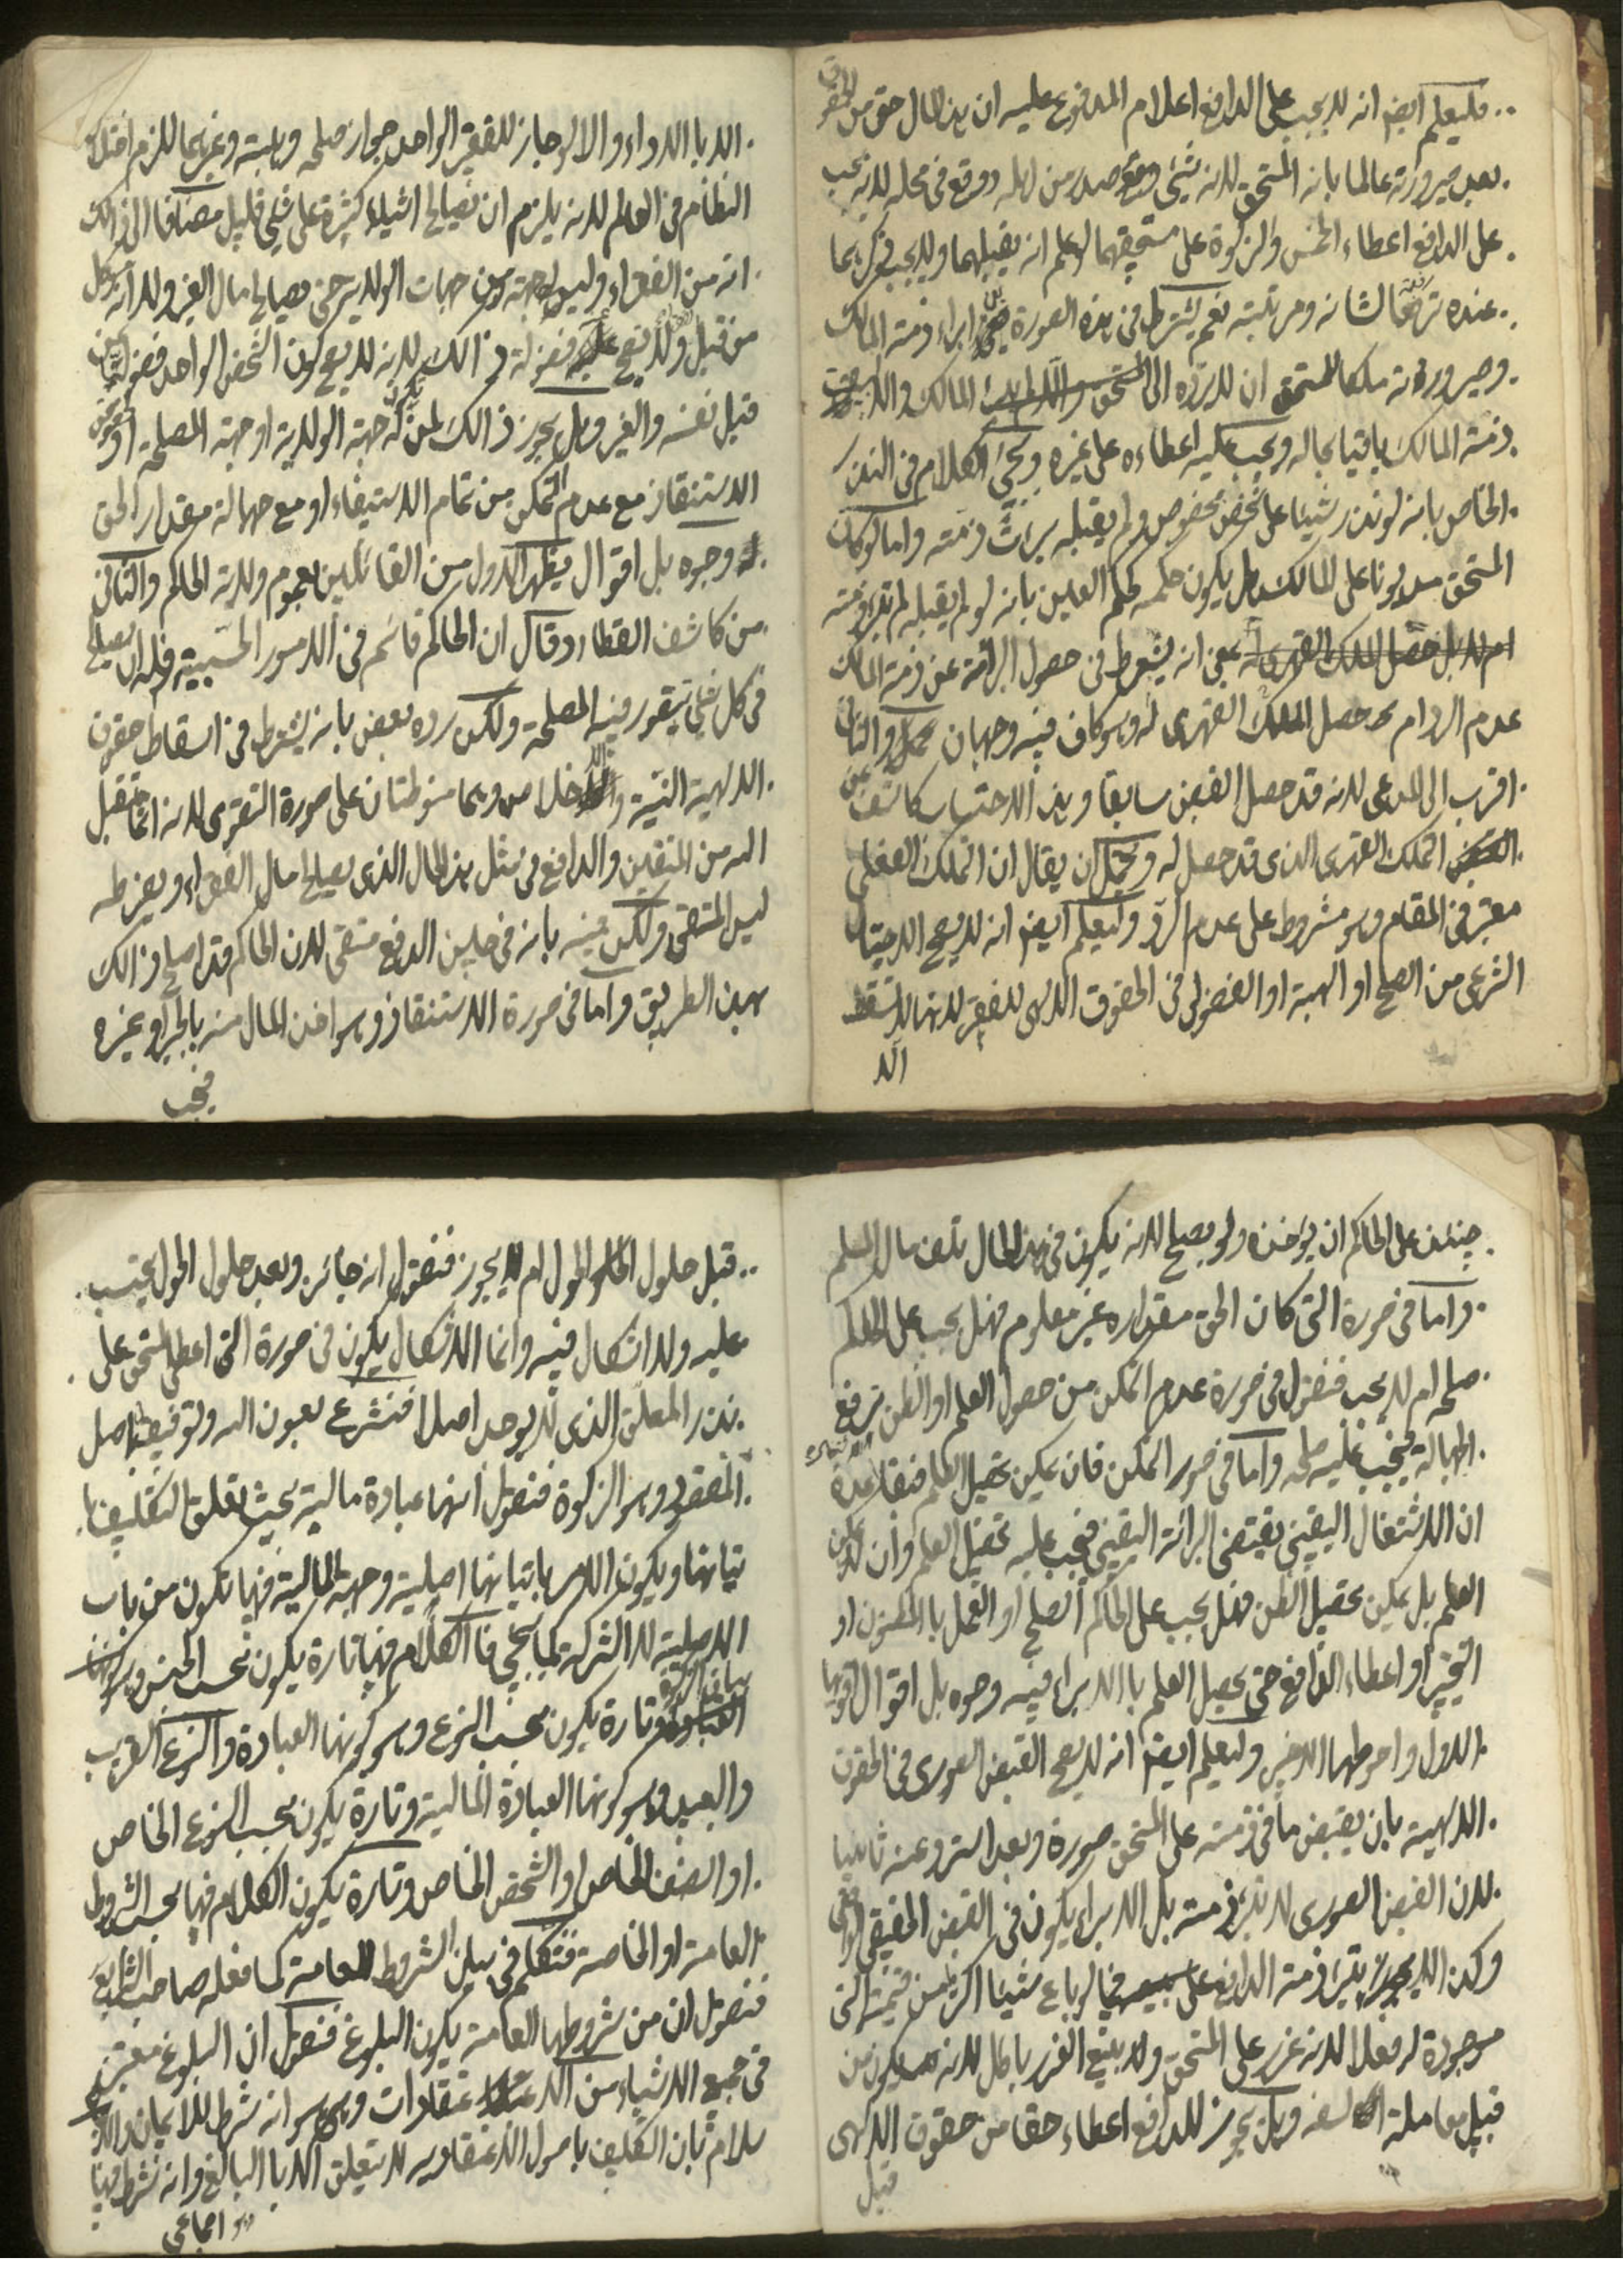 فليعلم ايضا انه لا يجب على الدافع اعلام المدفوع عليه ان هذا المال حق من الحقوق
بعد صيرورته عالما بانه المستحق لانه شيئ صدر من اهله ووقع في محله لانه يجب
على الدافع اعطاء الخمس والزكوة على مستحقهما لو علم انه يقبلهما ولا يجب ذكرهما
عنده ترفعا لشانه ومرتبته نعم يشترط في هذه الصورة في ابراء ذمة المالك
وصيرورته ملكا للمستحق ان لا يرده الى المالك والا
ذمة المالك باقيا بحاله ويجب عليه اعطاءه على غيره ويجئ الكلام في النذر
الخاص بانه لو نذر شيئا على شخص مخصوص ولم يقبله برائت ذمته واما لو كان
المستحق مديونا على المالك هل يكون حكمه كحكم العين بانه لو لم يقبله لم تبرء ذمته
بمعنى انه يشترط في حصول البرائة عن ذمة المالك
عدم الرد ام حصل الملك القهرى له وهو كاف فيه وجهان والثاني
اقرب الى المدعى لانه قد حصل القبض سابقا وهذا الاحتساب كاشف عن
التملك القهرى الذى قد حصل له ويحتمل ان يقال ان التملك الفعلى
معتبر في المقام وهو مشروط على عدم الرد وليعلم ايضا انه لا يصح الاحتيال
الشرعى من الصلح او الهبة او الفضولى في الحقوق الالهى للفقير لانها لا تسقط
الا
الا با الاداء والا لو جاز للفقير الواحد جواز صلحه وهبته وغيرهما للزم اختلال
النظام في العالم لانه يلزم ان يصالح اشياء كثيرة على شيئ قليل مضافا الى ذالك
انه من الفقراء وليس له جهة من جهات الولاية حتى يصالح مال الغير ولا انه وكيل
من قبل ولا يصح فضولة ذالك لانه لا يصح كون الشخص الواحد فضوليا من
قبل نفسه والغير وهل يجوز ذالك لمن له جهة الولاية او جهة المصلحة او
الاستنقاذ مع عدم التمكن من تمام الاستيفاء او مع جهالة مقدار الحق
وجوه بل اقوال يظهر الاول من القائلين بعموم ولاية الحاكم والثانى
من كاشف الغطاء وقال ان الحاكم قائم في الامور الحسبية فله ان يصالح
في كل شيئ يتصور فيه المصلحة ولكن رده بعض بانه يشترط في اسقاط حقوق
الالهية النية والاخلاص وهما منوطتان على صورة التقوى لانه انما يتقبل
الله من المتقين والدافع في مثل هذا المال الذى يصالح مال الفقراء ويفرطه
ليس المتقى ولكن فيه بانه في حين الدفع متقى لان الحاكم قد اصلح ذالك
بهذا الطريق واما في صورة الاستنقاذ وهو اخذ المال منه بالجبر او غيره
فيجب
حينئذ على الحاكم ان يؤخذه ولو بصلح لانه يكون في هذا المال تلف مال المسلم
واما في صورة التى كان الحق مقداره غير معلوم فهل يجب على الحاكم
صلحه ام لا يجب فنقول في صورة عدم التمكن من حصول العلم او الظن برفع
الجهالة فيجب عليه صلحه واما في صور التمكن فان يمكن تحصيل العلم فبقاعدة
ان الاشتغال اليقينى يقتضى البرائة اليقينى فيجب عليه تحصيل العلم وان لا يمكن
العلم بل يمكن تحصيل الظن فهل يجب على الحاكم الصلح او العمل با المظنون او
التخيير او اعطاء الدافع حتى يحصل العلم با الابراء فيه وجوه بل اقوال اقويها
الاول واحوطها الاخير وليعلم ايضا انه لا يصح القبض الصورى في الحقوق
الالهية بان يقبض ما في ذمته على المستحق صورة وبعد استرد عنه ثانيا
لان القبض الصورى لا تبرء ذمته بل الابراء يكون في القبض الحقيقى الواقعى
وكذا لا تبرء ذمة الدافع على فيما لو باع شيئا اكثر من قيمته التى
موجودة له فعلا لانه غرر على المستحق ولا ينتفع الغرر با كل لانه يكون من
قبيل معاملة السفه وهل يجوز للدافع اعطاء حقا من حقوق الالهى
قبل
قبل حلول الحول ام لا يجوز فنقول انه جائز وبعد حلول الحول يحتسب
عليه ولا اشكال فيه وانما الاشكال يكون في صورة التى اعطى المستحق على
نذر المعلق الذى لا يوجد اصلا فنشرع بعون الله وتوفيقه باصل
المقصود وهو الزكوة فنقول انها عبادة مالية بحيث تعلق التكليف
تيانها ويكون الامر باتيانها اصلية وجهة المالية فيها تكون من باب
الاصلية لا الشركة كما يجئ فا الكلام فيها تارة يكون بحسب الجنس وهو كونها
وتارة يكون بحسب النوع وهو كونها العبادة والنوع القريب
والبعيد وهو كونها العبادة المالية وتارة يكون بحسب النوع الخاص
او الصنف الخاص او الشخص الخاص وتارة يكون الكلام فيها بحسب الشروط
العامة او الخاصة فنتكلم في بيان الشروط العامة كما فعله صاحب الشرايع
فنقول ان من شروطها العامة يكون البلوغ فنقول ان البلوغ معتبر
في جميع الاشياء من الاعتقادات وهو انه شرط للايمان والا
سلام بان التكليف باصول الاعتقاديه لا يتعلق الا با البالغ وانه شرط فيها
اجماعى